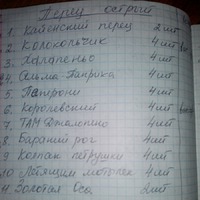 Перец острый
1 Кайенский перец 2 шт
2 Колокольчик 4 шт
3. Халапеньо 4 шт
4. Альма Паприка 4 шт
5 Пепперони 4 шт
6. Королевский 4 шт
7. ТАМ Джалапино 4 шт
8 Бараний рог 4 шт
9 Колпак петрушки 4 шт
10 Летящий мотылек 4 шт
11 Золотая Оса 2 шт